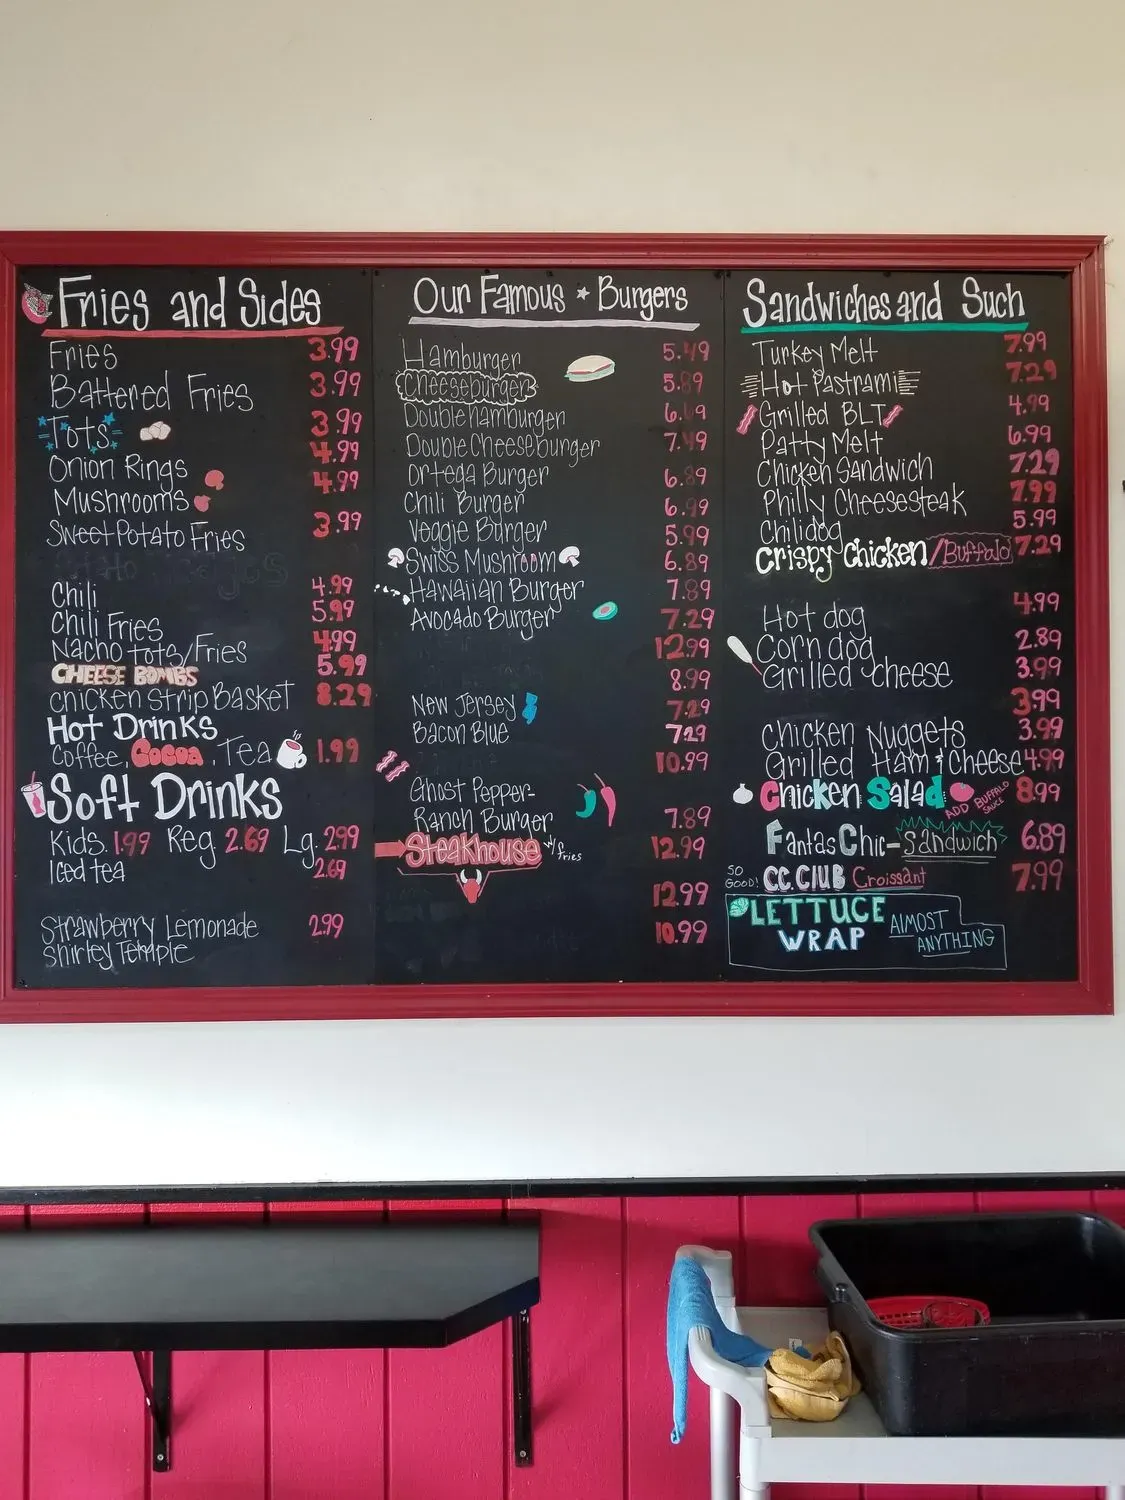 Fries and Sides
Fries 3.99
Battered Fries 3.99
Tots 3.99
Onion Rings 4.99
Mushrooms 4.99
Sweet Potato Fries 3.99
Chili 4.99
Chili Fries 5.99
Nacho tots/Fries 4.99
CHEESE BOMBS 5.99
chicken strip Basket 8.29
Hot Drinks
Coffee, Cocoa, Tea 1.99
Soft Drinks
Kids. 1.99 Reg. 2.69 Lg. 2.99
Iced tea 2.69
Strawberry Lemonade 2.99
Shirley Temple
Our Famous Burgers
Hamburger 5.49
Cheeseburger 5.89
Double hamburger 6.69
Double Cheeseburger 7.49
Ortega Burger 6.89
Chili Burger 6.99
Veggie Burger 5.99
Swiss Mushroom 6.89
Hawaiian Burger 7.89
Avocado Burger 7.29
12.99
8.99
New Jersey 7.29
Bacon Blue 7.29
10.99
Ghost Pepper-
Ranch Burger 7.89
Steakhouse w/fries 12.99
12.99
10.99
Sandwiches and Such
Turkey Melt 7.99
Hot Pastrami 7.29
Grilled BLT 4.99
Patty Melt 6.99
Chicken Sandwich 7.29
Philly Cheesesteak 7.99
Chilidog 5.99
Crispy Chicken /Buffalo 7.29
Hot dog 4.99
Corn dog 2.89
Grilled cheese 3.99
3.99
Chicken Nuggets 3.99
Grilled Ham & cheese 4.99
Chicken Salad ADD BUFFALO SAUCE 8.99
FantasChic-Sandwich 6.89
SO GOOD! CC.CLUB Croissant 7.99
LETTUCE WRAP
ALMOST ANYTHING